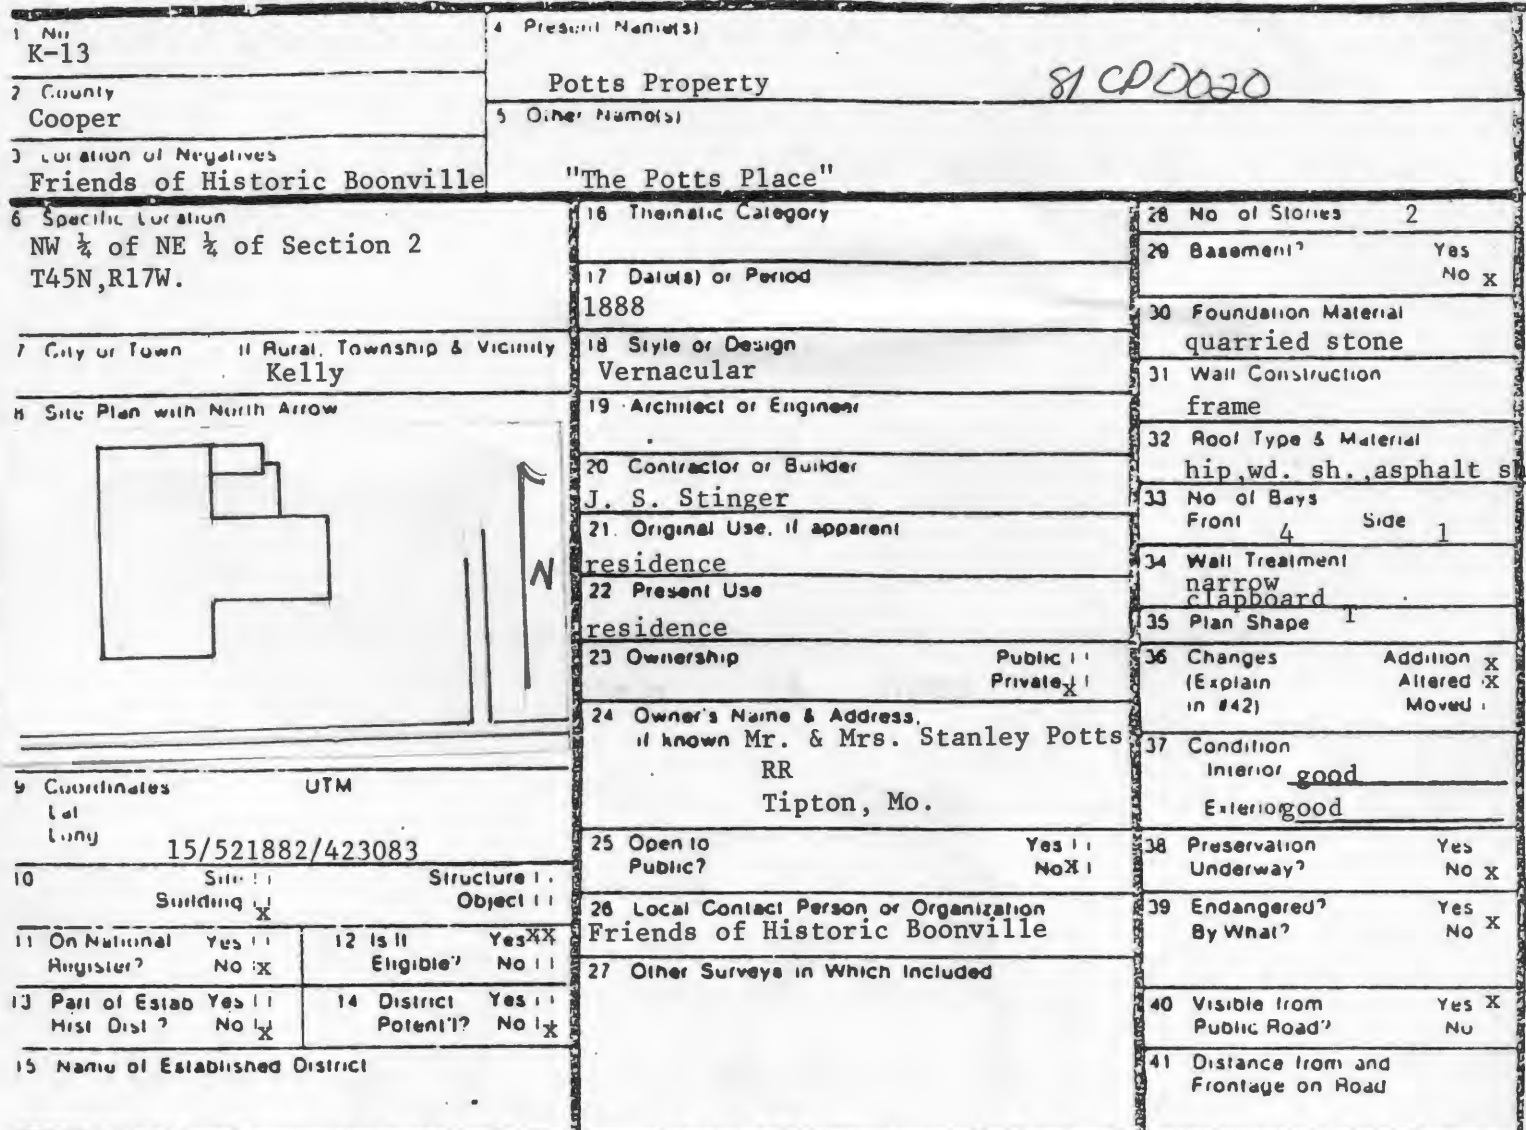 1 No
K-13
2 County
Cooper
3 Location of Negatives
Friends of Historic Boonville
4 Present Name(s)
Potts Property
81 CP0020
5 Other Name(s)
"The Potts Place"
6 Specific Location
NW ¼ of NE ¼ of Section 2
T45N,R17W.
7 City or Town If Rural, Township & Vicinity
Kelly
8 Site Plan with North Arrow
N
9 Coordinates UTM
Lat
Long
15/521882/423083
10 Site Structure
Building x Object
11 On National Yes
Register? No x
12 Is It Yes XX
Eligible? No
13 Part of Estab Yes
Hist Dist? No x
14 District Yes
Potent'l? No x
15 Name of Established District
16 Thematic Category
17 Date(s) or Period
1888
18 Style or Design
Vernacular
19 Architect or Engineer
20 Contractor or Builder
J. S. Stinger
21. Original Use, if apparent
residence
22 Present Use
residence
23 Ownership Public
Private x
24 Owner's Name & Address,
if known Mr. & Mrs. Stanley Potts
RR
Tipton, Mo.
25 Open to Yes
Public? No X
26 Local Contact Person or Organization
Friends of Historic Boonville
27 Other Surveys in Which Included
28 No of Stories 2
29 Basement? Yes
No x
30 Foundation Material
quarried stone
31 Wall Construction
frame
32 Roof Type & Material
hip,wd. sh.,asphalt sh
33 No of Bays
Front 4 Side 1
34 Wall Treatment
narrow
clapboard
35 Plan Shape T
36 Changes Addition x
(Explain Altered X
in #42) Moved
37 Condition
Interior good
Exterior good
38 Preservation Yes
Underway? No x
39 Endangered? Yes
By What? No x
40 Visible from Yes X
Public Road? No
41 Distance from and
Frontage on Road